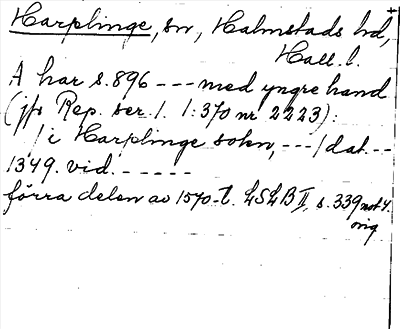 Harplinge, sn, Halmstads hd,
Hall. l.
A har s. 896 --- med yngre hand
(jfr Rep. ser. 1. 1:370 nr 2223):
/i Harplinge sokn, ---/ dat. --
1349. vid. ------
förra delen av 1570-t. LSLB II, s. 339 not 4.
orig